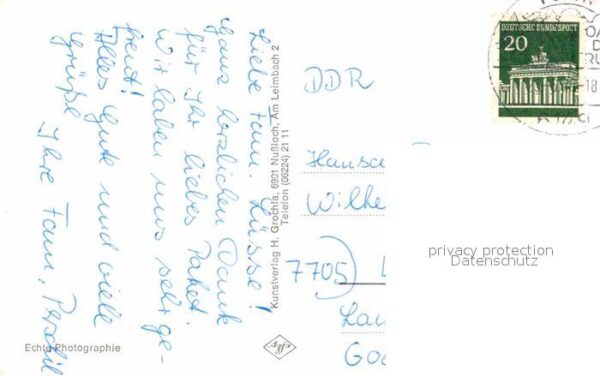 Liebe Fam. Lüsse!
Ganz herzlichen Dank
für Ihr liebes Paket.
Wir haben uns sehr ge-
freut!
Alles Gute und viele
Grüße Ihre Fam.
Kunstverlag H. Grochla, 6901 Nußloch, Am Leimbach 2
Telefon (06224) 21 11
Echte Photographie
DEUTSCHE BUNDESPOST
20
DDR
Wilhe
7705)
privacy protection
Datenschutz